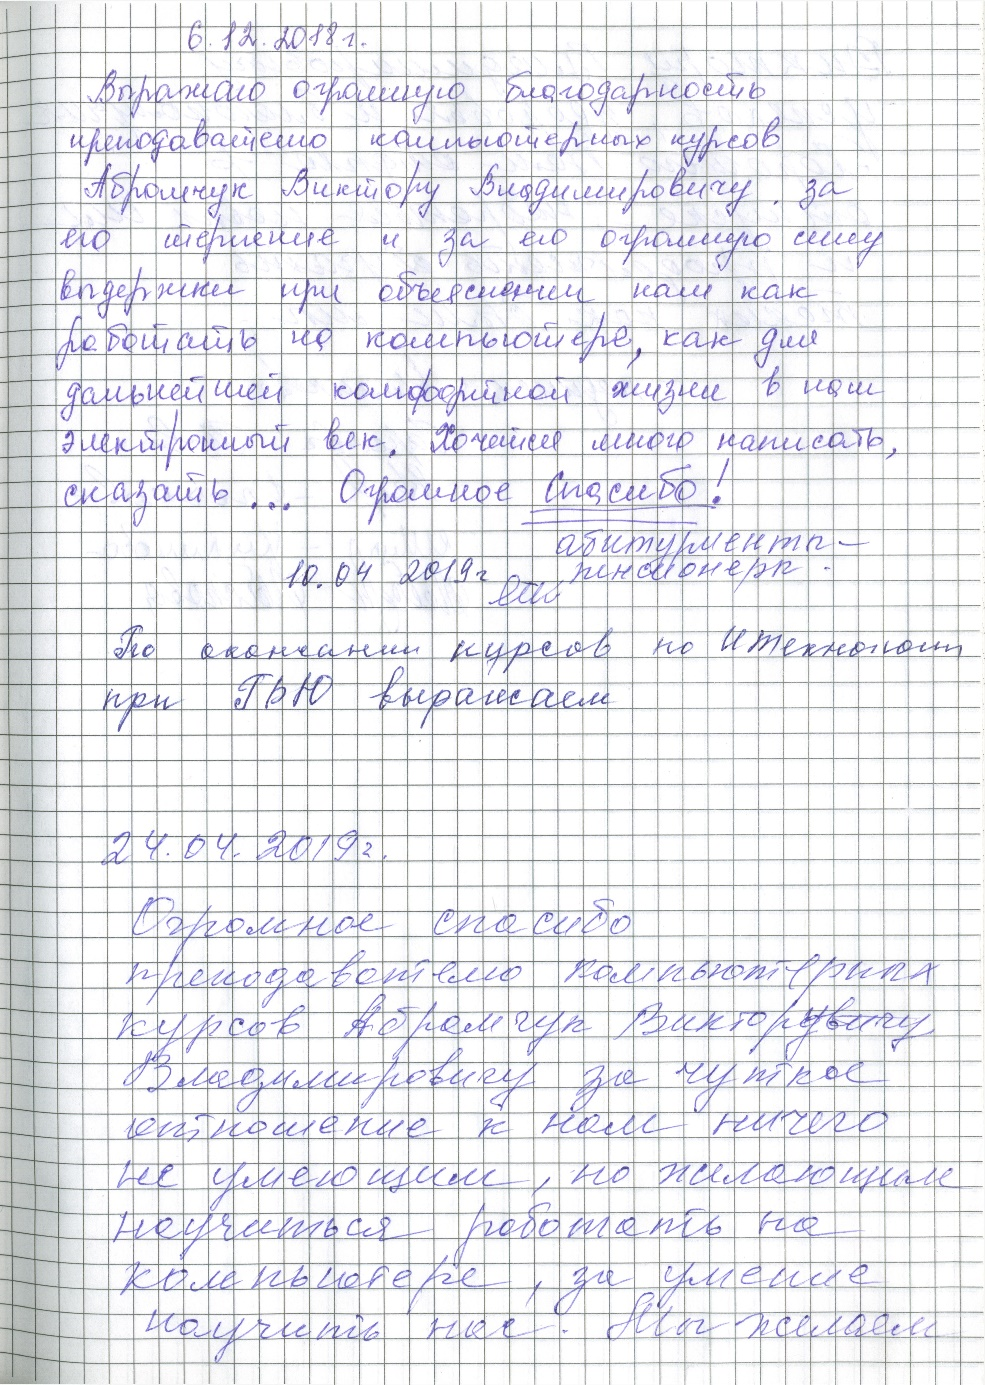 6.12.2018г.
Выражаю огромную благодарность
преподавателю компьютерных курсов
Абромчук Виктору Владимировичу за
его терпение и за его огромную силу
выдержки при объяснении нам как
работать на компьютере, как для
дальнейшей комфортной жизни в наш
электронный век. Хочется много написать,
сказать... Огромное Спасибо!
абитурменты-
пенсионерк.
10.04 2019г
По окончании курсов по ИТехнологии
при выражаем
24.04.2019г.
Огромное спасибо
преподавателю компьютерных
курсов Абромчук Викторувичу
Владимировичу за чуткое
отношение к нам ничего
не умеющим, но желающим
научиться работать на
компьютере, за умение
научить нас. Мы желаем